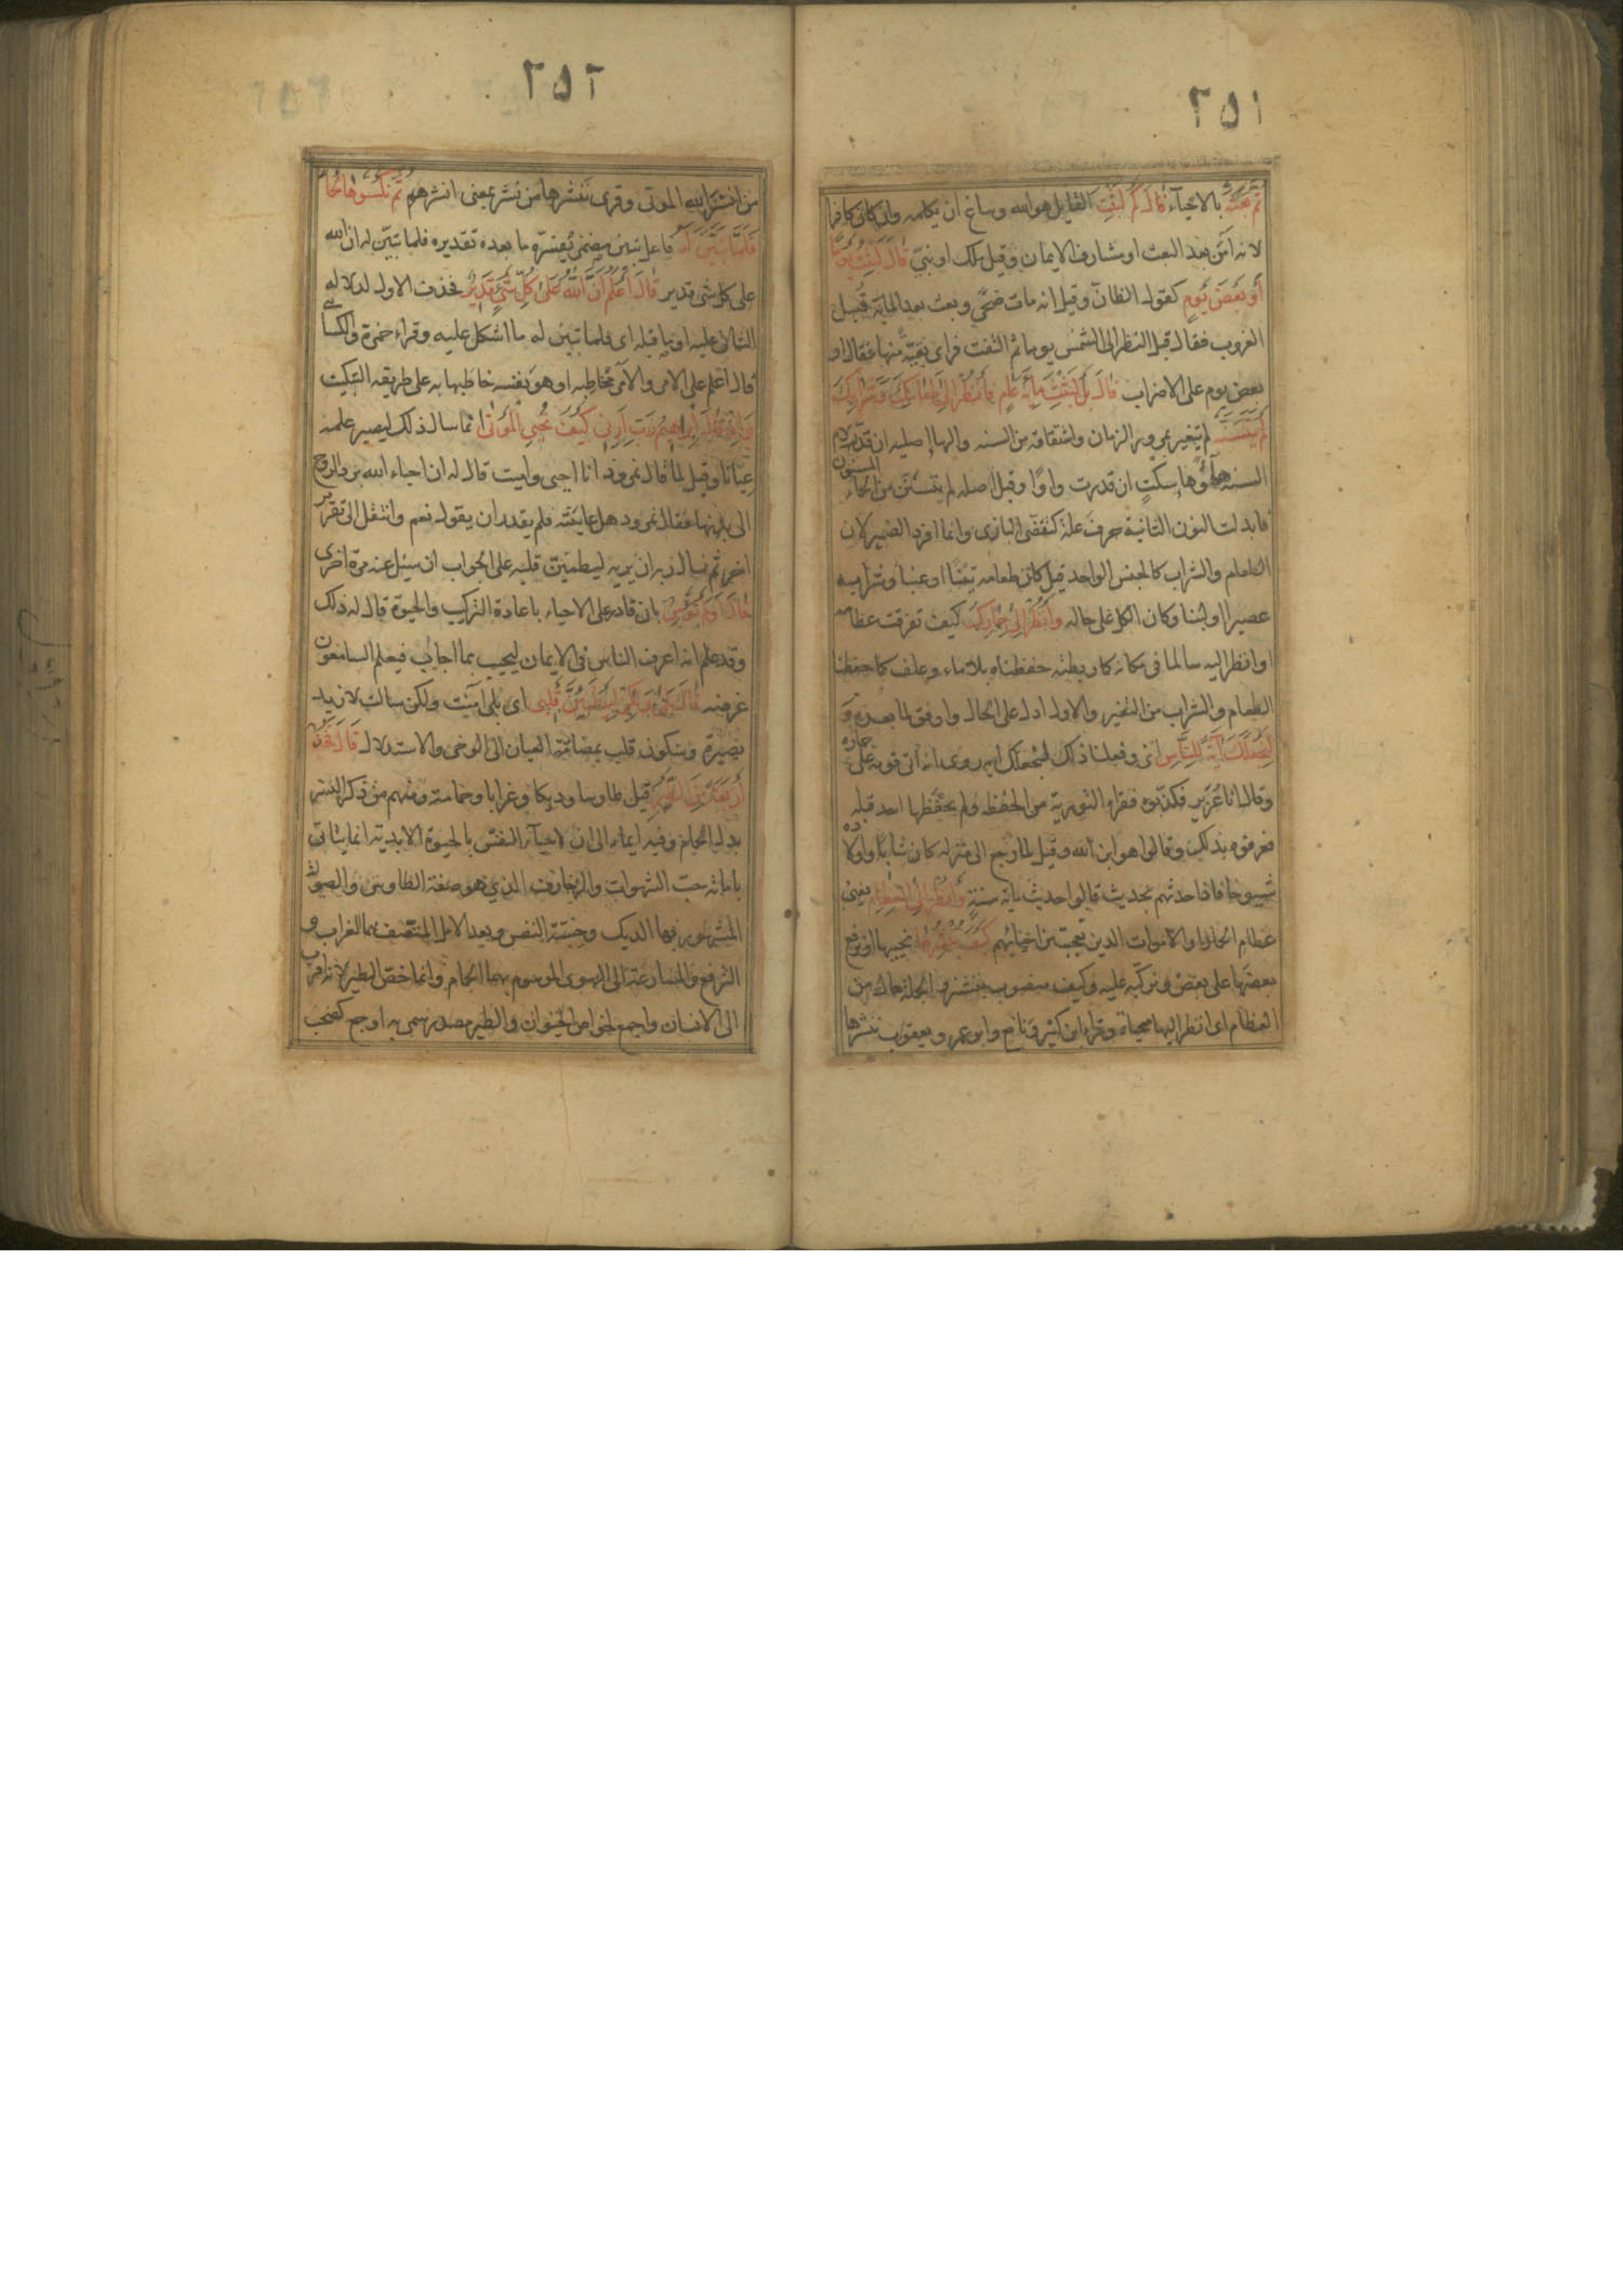 ٢٥١
ثم بعثه بالاحيآء قال كم لبثت القايل هو الله وساغ ان يكلمه وان كان كافرا
لانه آمن بعد البعث او شارف الايمان وقيل ملك او نبي قال لبثت يوما
أو بعض يوم كقول الظان وقيل انه مات ضحى وبعث بعد الماية قبيل
الغروب فقال قبل النظر الى الشمس يوما ثم التفت فراى بقية منها فقال او
بعض يوم على الاضراب قال بل لبثت مائة عام فانظر الى طعامك وشرابك
لم يتسنه لم يتغير بمرور الزمان واشتقاقه من السنه والها اصليه ان قدر لام
السنه هآء وهاء سكت ان قدرت واوا وقيل اصله لم يتسنن من الحماء المسنون
فابدلت النون الثانية حرف علة كتقضى البازى وانما افرد الضمير لان
الطعام والشراب كالجنس الواحد قيل كان طعامه تينا او عنبا وشرابه
عصيرا او لبنا وكان الكل على حاله وانظر الى حمارك كيف تفرقت عظامه
او انظر اليه سالما فى مكانه كما ربطته حفظناه بلا ماء وعلف كما حفظنا
الطعام والشراب من التغير والاول ادل على الحال واوفق لما بعده و
لنجعلك آية للناس اى وفعلنا ذلك لنجعلك اية روى انه اتى قومه على حماره
وقال انا عزير فكذبوه فقراء التورية من الحفظ ولم يحفظها احد قبله
فعرفوه بذلك وقالوا هو ابن الله وقيل لما رجع الى منزله كان شابا واولاده
شيوخا فاذا حدثهم بحديث قالوا حديث ماية سنة وانظر الى العظام يعنى
عظام الحمار او الاموات الذين تعجبت من احيائهم كيف ننشزها نحييها او نرفع
بعضها على بعض ونركبه عليه وكيف منصوب بننشز والجملة حال من
العظام اى انظر اليها محياة وقراء ابن كثير ونافع وابو عمرو ويعقوب ننشرها
٢٥٢
من انشر الله الموتى وقرى ننشرها من نشر بمعنى انشرهم ثم نكسوها لحما
فلما تبين له فاعل تبين مضمر يفسره ما بعده تقديره فلما تبين له ان الله
على كل شى قدير قال أعلم أن الله على كل شئ قدير فحذف الاول لدلالة
الثانى عليه او ما قبله اى فلما تبين له ما اشكل عليه وقراء حمزة والكسائى
قال اعلم على الامر والآمر مخاطبه او هو نفسه خاطبها به على طريقه التبكيت
وإذ قال إبراهيم رب أرني كيف تحيي الموتى انما سال ذلك ليصير علمه
عيانا وقيل لما قال نمرود انا احيى واميت قال له ان احياء الله برد الروح
الى بدنها فقال نمرود هل عاينته فلم يقدر ان يقول نعم وانتقل الى تقرير
اخر ثم سال ربه ان يريه ليطمئن قلبه على الجواب ان سئل عنه مرة اخرى
قال أولم تؤمن بان قادر على الاحياء باعادة التركيب والحيوة قال له ذلك
وقد علم انه اعرف الناس فى الايمان ليجيب بما اجاب فيعلم السامعون
غرضه قال بلى ولكن ليطمئن قلبي اى بلى امنت ولكن سالت لازيد
بصيرة وسكون قلب بمضامة العيان الى الوحى والاستدلال قال فخذ
أربعة من الطير قيل طاوسا وديكا وغرابا وحمامة ومنهم من ذكر النسر
بدل الحمام وفيه ايماء الى ان احيآء النفس بالحيوة الابدية انما يتاتى
باماتة حب الشهوات والزخارف الذي هو صفة الطاوس والصولة
المشهور بها الديك وخسة النفس وبعد الامل المتصف بهما الغراب و
الترفع والمسارعة الى الهوى الموسوم بهما الحمام وانما خص الطير لانه اقرب
الى الانسان واجمع لخواص الحيوان والطير مصدر سمى به او جمع كصحب